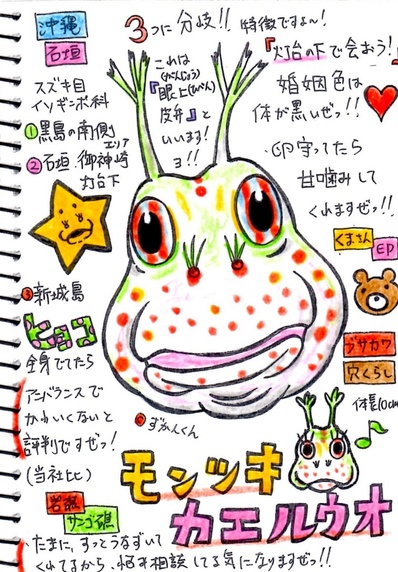 沖縄
石垣
スズキ目
イソギンポ科
①黒島の南側
エリア
②石垣 御神崎
灯台下
③新城島
ヒョコ
全身でてたら
アンバランスで
かわいくないと
評判ですぜっ!
(当社比)
岩礁
サンゴ礁
たまに、すっとうなずいて
くれてるから、悩み相談してる気になりますぜっ!!
3つに分岐!!
特徴ですよ〜!
これは
(がんじょう)(ひべん)
『眼上
皮弁』と
いいます!
ヨ!!
『灯台の下で会おう!』
婚姻色は
体が黒いぜっ!!
・卵守ってたら
甘噛みして
くれますぜっ!!
くまさん
EP
ブサカワ
穴ぐらし
体長10cm
ずかんくん
モンツキ
カエルウオ